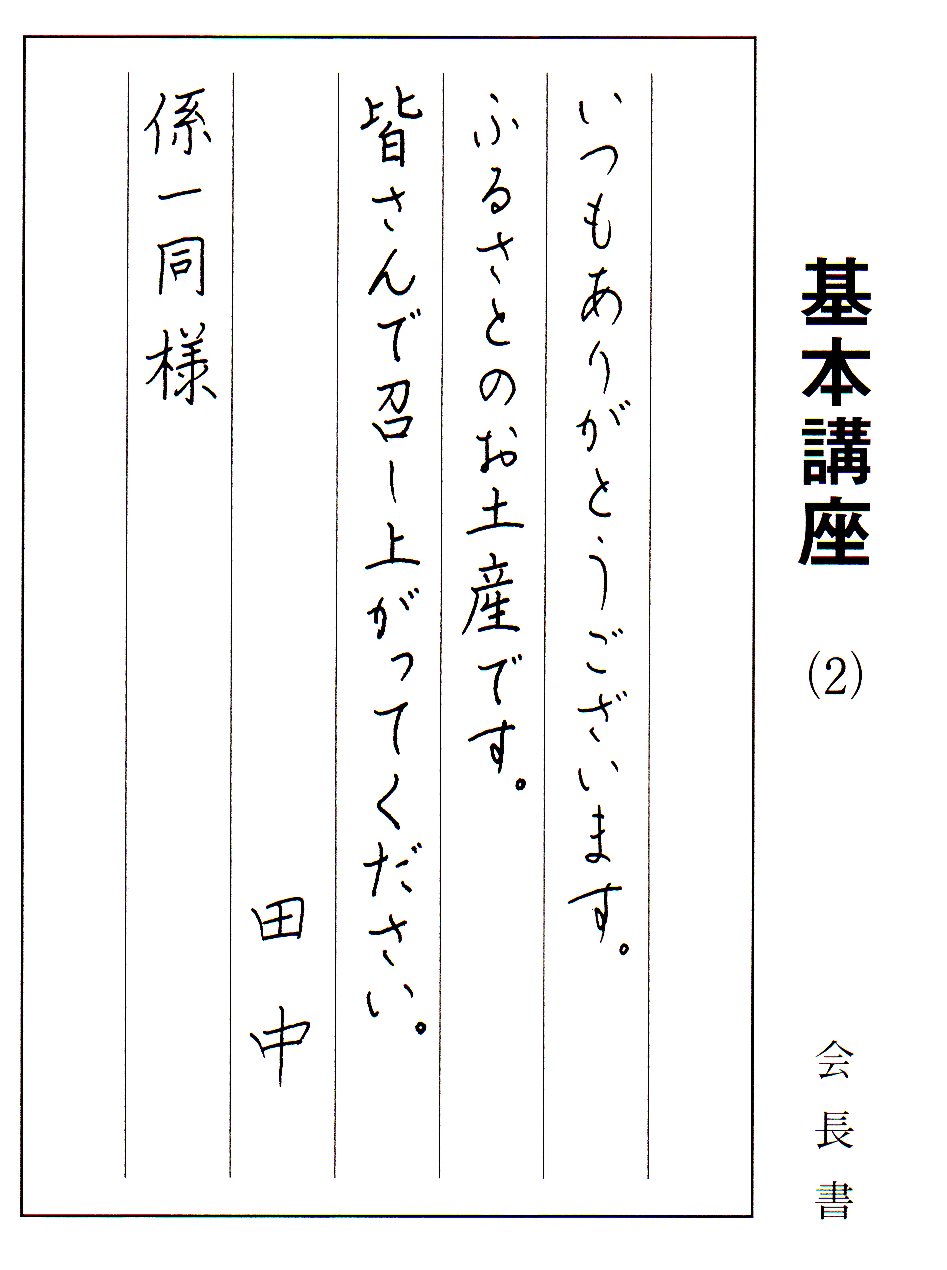 基本講座 (2) 会長書
いつもありがとうございます。
ふるさとのお土産です。
皆さんで召し上がってください。
田中
係一同様